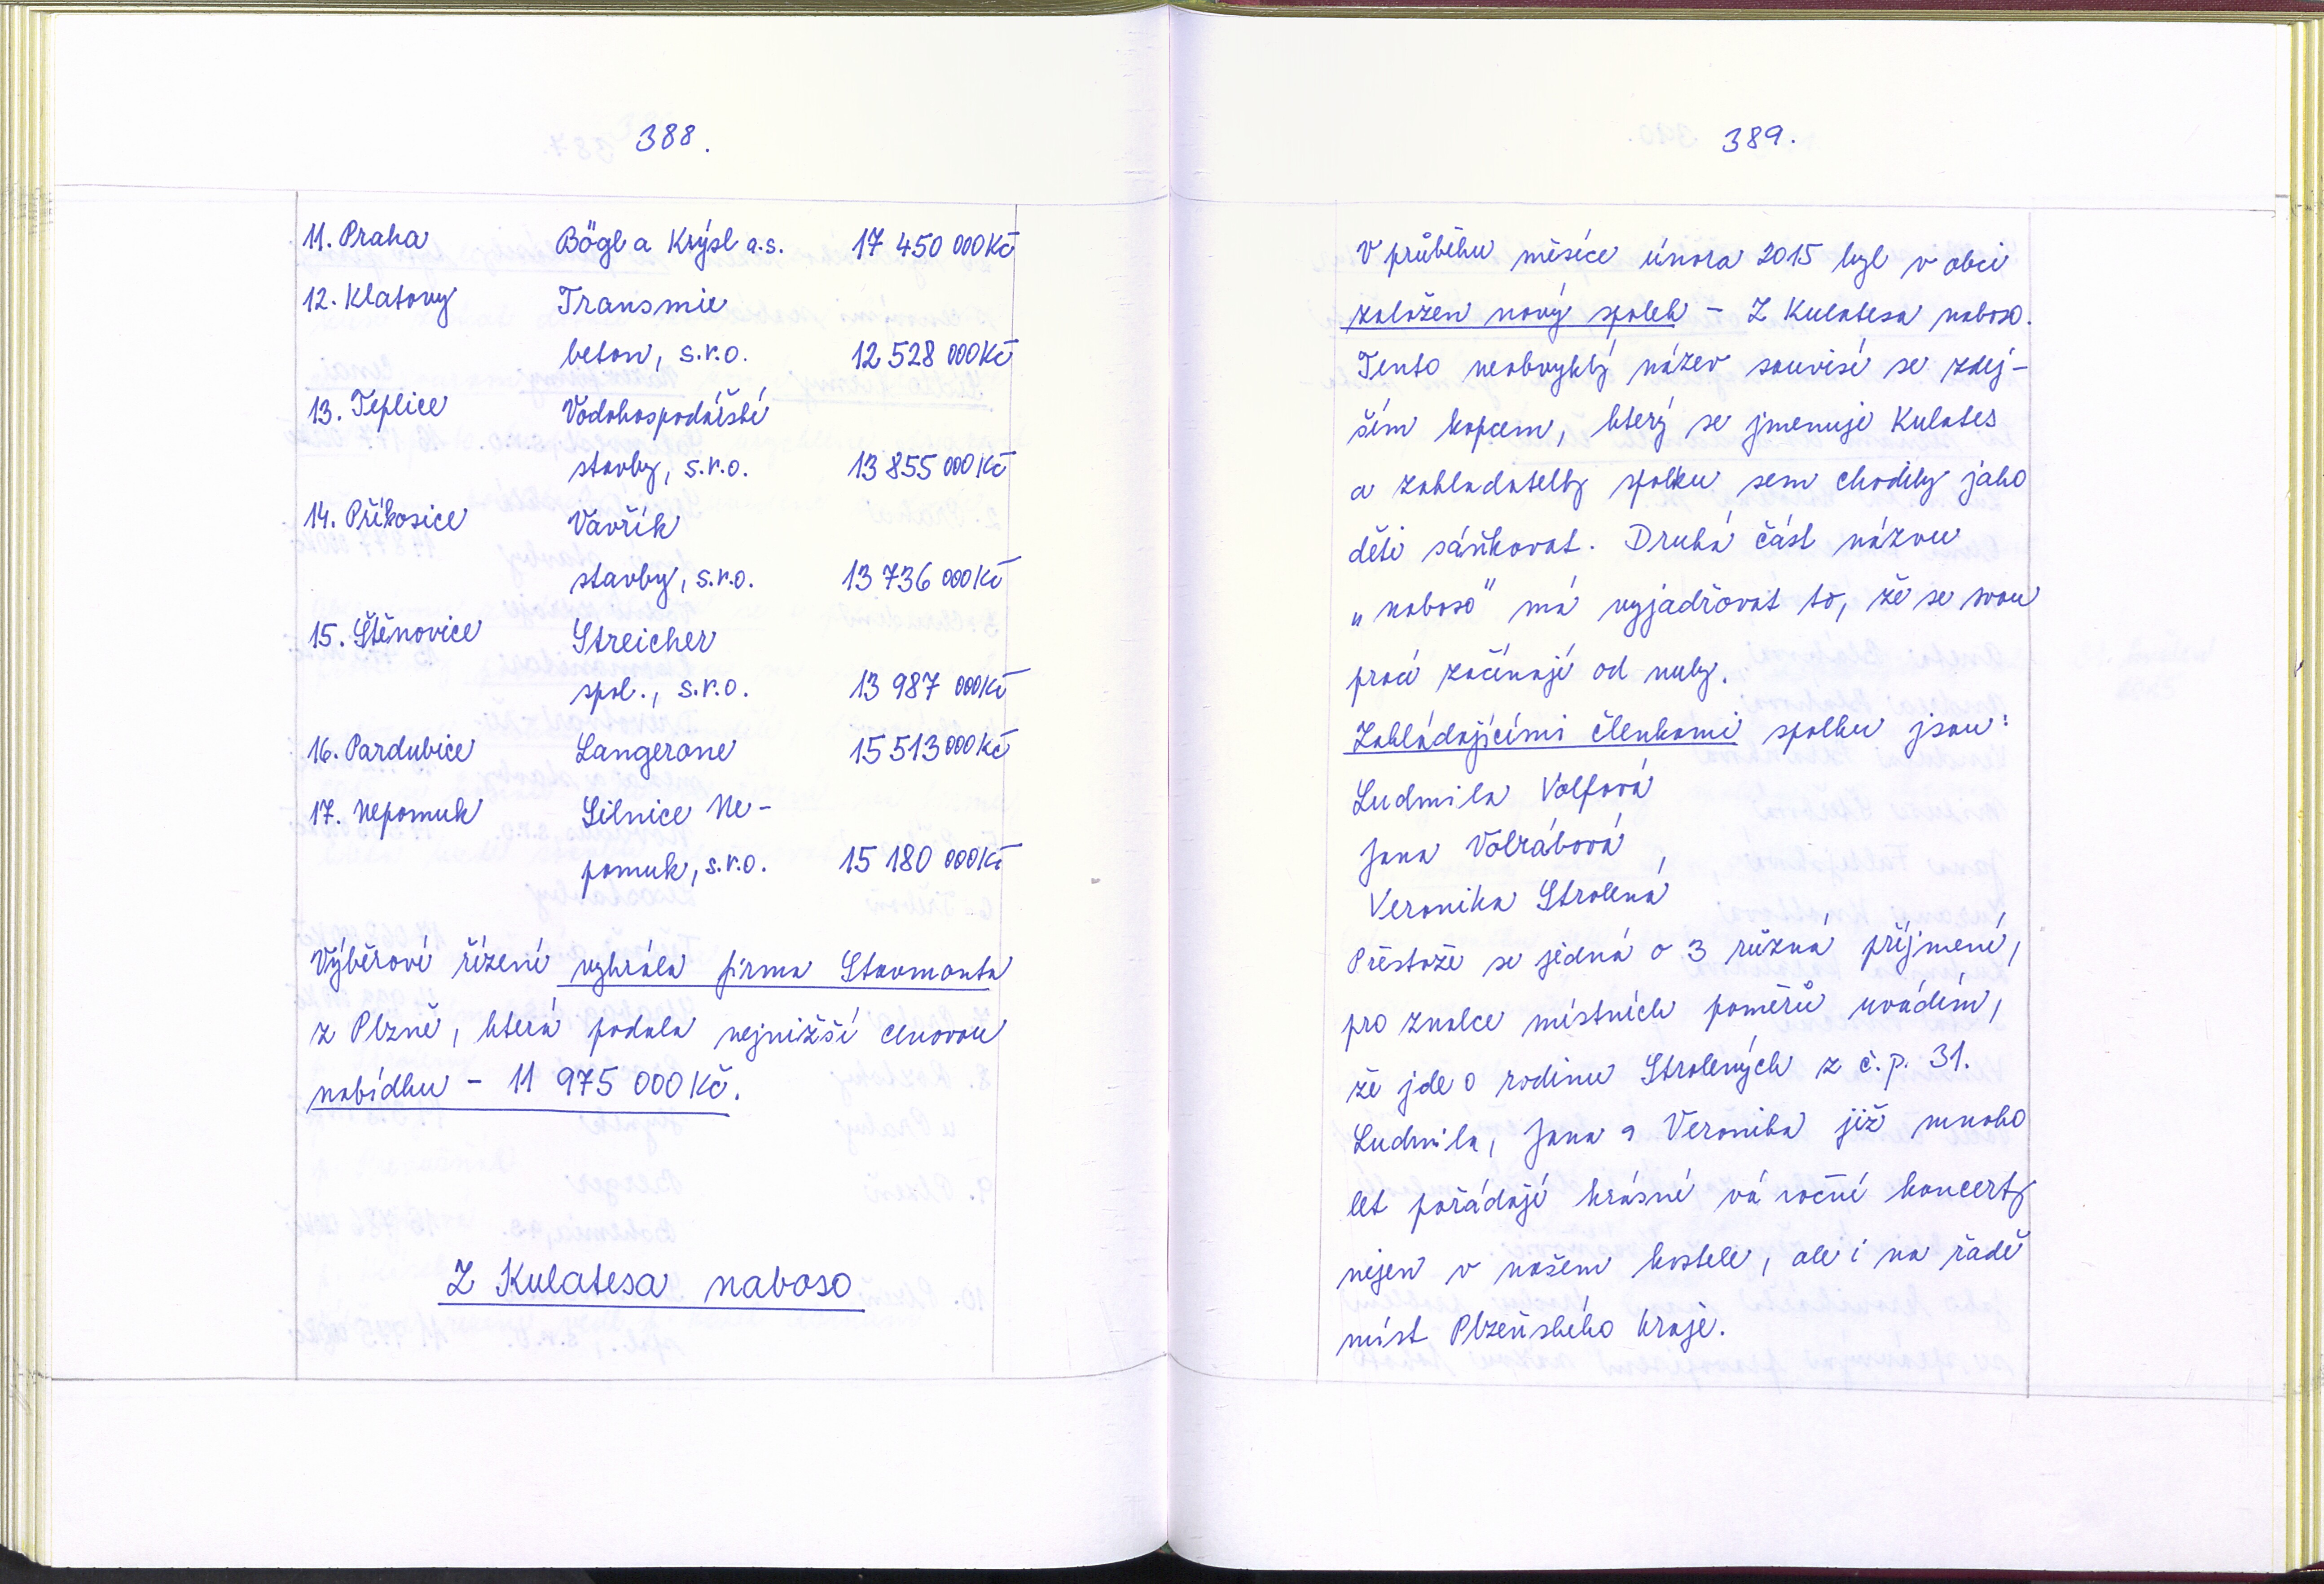 388.
11. Praha Bögl a Krýsl a.s. 17 450 000 Kč
12. Klatovy Transmie
beton, s.r.o. 12 528 000 Kč
13. Teplice Vodohospodářské
stavby, s.r.o. 13 855 000 Kč
14. Příkosice Vavřík
stavby, s.r.o. 13 736 000 Kč
15. Štěnovice Streicher
spol., s.r.o. 13 987 000 Kč
16. Pardubice Langerone 15 513 000 Kč
17. Nepomuk Silnice Ne-
pomuk, s.r.o. 15 180 000 Kč
Výběrové řízení vyhrála firma Stavmonta
z Plzně, která podala nejnižší cenovou
nabídku - 11 975 000 Kč.
Z Kulatesa naboso
389.
V průběhu měsíce února 2015 byl v obci
založen nový spolek - Z Kulatesa naboso.
Tento neobvyklý název souvisí se zdej-
ším kopcem, který se jmenuje Kulates
a zakladatelky spolku sem chodily jako
děti sáňkovat. Druhá část názvu
„naboso" má vyjadřovat to, že se svou
prací začínají od nuly.
Zakládajícími členkami spolku jsou:
Ludmila Volfová
Jana Voltrábová,
Veronika Strolená
Přestože se jedná o 3 různá příjmení,
pro znalce místních poměrů uvádím,
že jde o rodinu Strolených z č.p. 31.
Ludmila, Jana a Veronika již mnoho
let pořádají krásné vánoční koncerty
nejen v našem kostele, ale i na řadě
míst Plzeňského kraje.